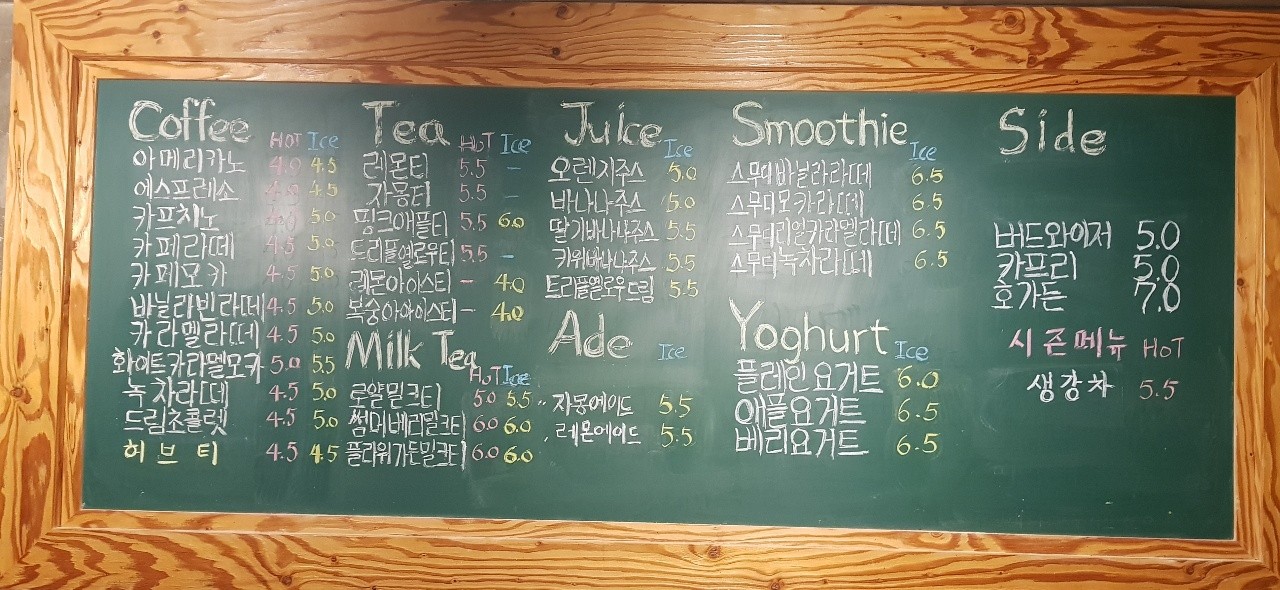 Coffee HOT Ice
아메리카노 4.0 4.5
에스프레소 4.0 4.5
카프치노 5.0
카페라떼 4.5 5.0
카페모카 4.5 5.0
바닐라빈라떼 4.5 5.0
카라멜라떼 4.5 5.0
화이트카라멜모카 5.0 5.5
녹차라떼 4.5 5.0
드림초콜렛 4.5 5.0
허브티 4.5 4.5
Tea HOT Ice
레몬티 5.5 -
자몽티 5.5 -
핑크애플티 5.5 6.0
트리플옐로우티 5.5 -
레몬아이스티 - 4.0
복숭아아이스티 - 4.0
Milk Tea HOT Ice
로얄밀크티 5.0 5.5
썸머베리밀크티 6.0 6.0
플라워가든밀크티 6.0 6.0
Juice Ice
오렌지주스 5.0
바나나주스 5.0
딸기바나나주스 5.5
키위바나나주스 5.5
트리플옐로우드림 5.5
Ade Ice
자몽에이드 5.5
레몬에이드 5.5
Smoothie Ice
스무디바닐라라떼 6.5
스무디모카라떼 6.5
스무디리얼카라멜라떼 6.5
스무디녹차라떼 6.5
Yoghurt Ice
플레인요거트 6.0
애플요거트 6.5
베리요거트 6.5
Side
버드와이저 5.0
카프리 5.0
호가든 7.0
시즌메뉴 HOT
생강차 5.5